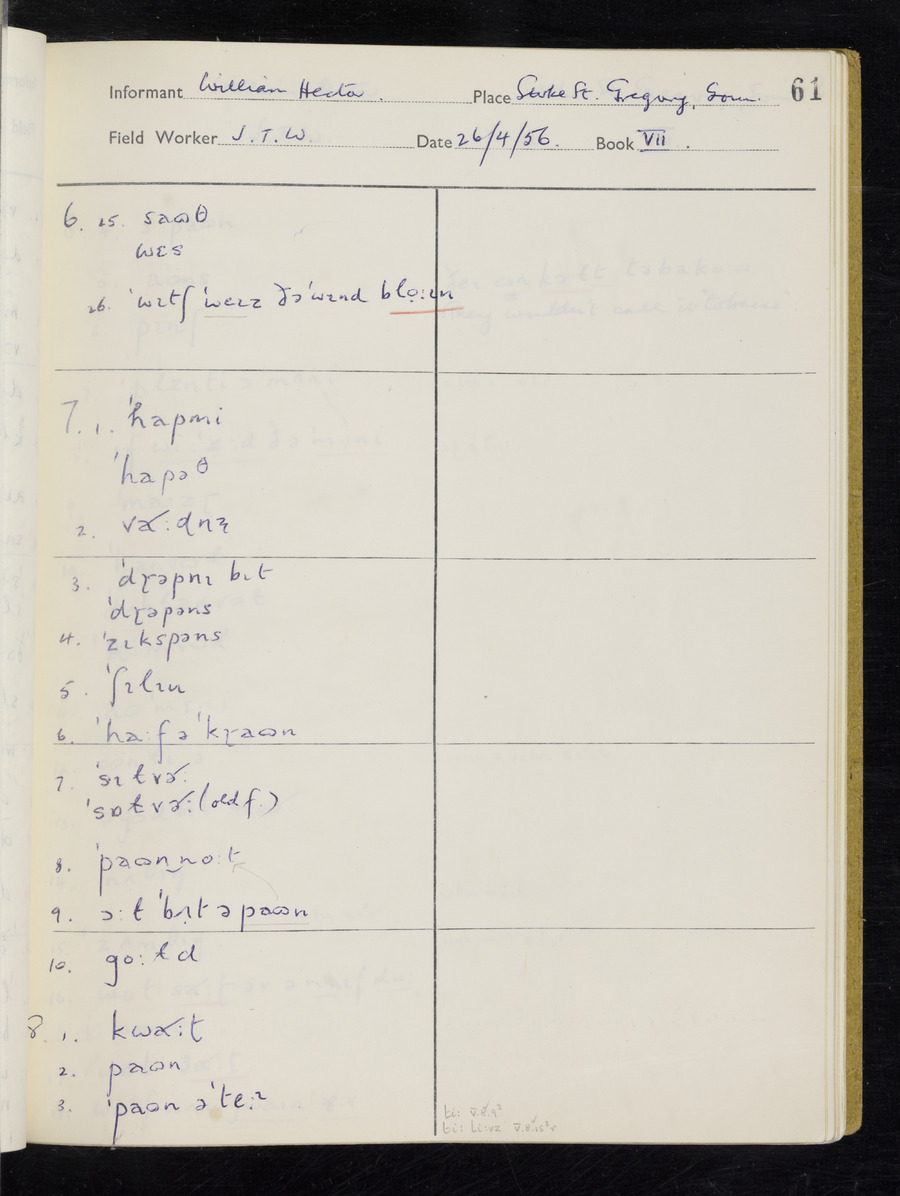 61
Informant William Hector. Place Stoke St. Gregory, Som.
Field Worker J. T. W. Date 26/4/56. Book VII.
6. 25. saɷθ
wɛs
26. ˈwɪtʃ ˈweɪz ðəˈwɪnd blo̜:ɪn
7. 1. ˈhapmi
ˈhapəθ
2. vɚ:ɖɳʐ
3. ˈdɽəpnɪ bɪt
ˈdɽəpəns
4. ˈzɪkspəns
5. ˈʃɪlɪn
6. ˈha:f ə ˈkɽaɷn
7. ˈsɪɫvɚ:
ˈsɒɫvɚ: (old f.)
8. ˈpaɷn no:t
9. ə:t ˈbɪt ə paɷn
10. go:ɫd
8. 1. kwɚ:t
2. paɷn
3. ˈpaɷn əˈte:ᶻ